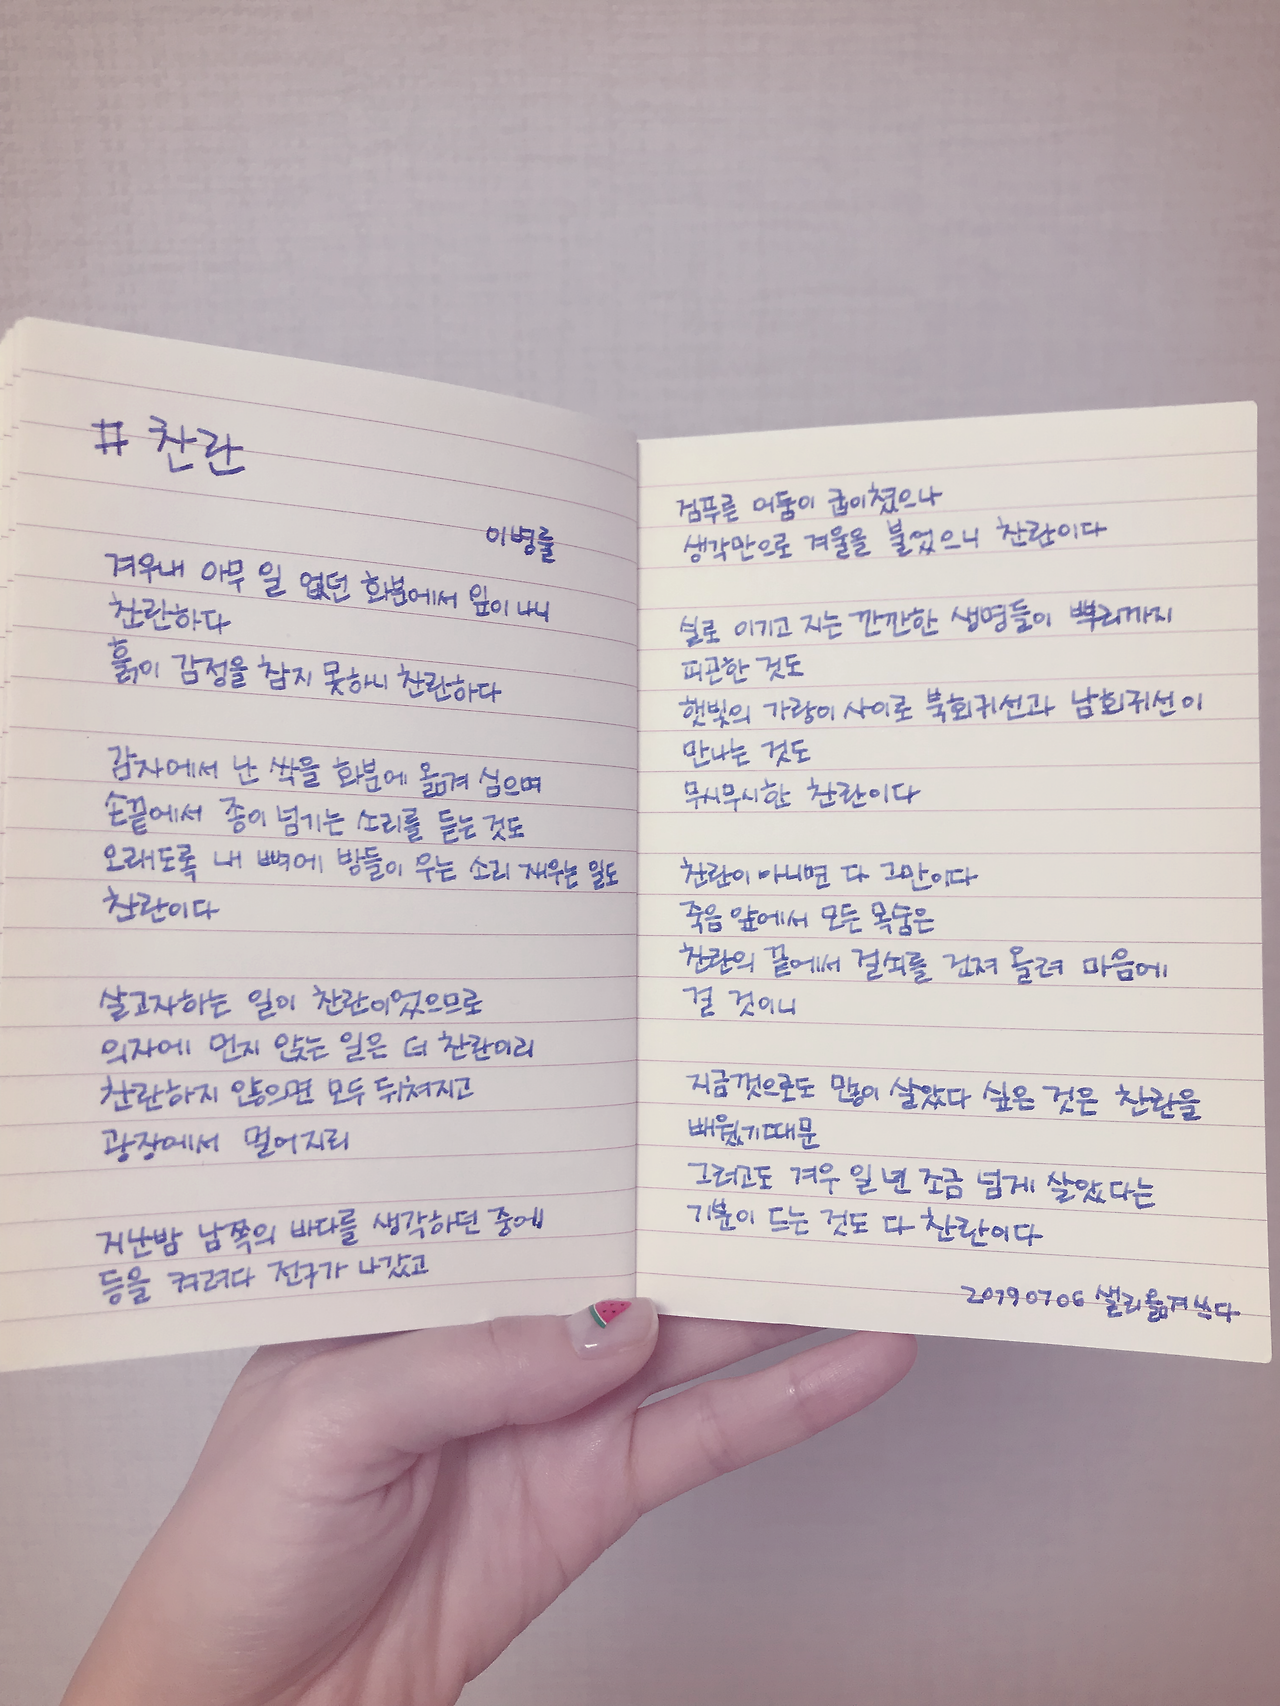 # 찬란
이병률
겨우내 아무 일 없던 화분에서 잎이 나니
찬란하다
흙이 감정을 참지 못하니 찬란하다
감자에서 난 싹을 화분에 옮겨 심으며
손끝에서 종이 넘기는 소리를 듣는 것도
오래도록 내 뼈에 방들이 우는 소리 재우는 일도
찬란이다
살고자하는 일이 찬란이었으므로
의자에 먼지 앉는 일은 더 찬란이리
찬란하지 않으면 모두 뒤쳐지고
광장에서 멀어지리
지난밤 남쪽의 바다를 생각하던 중에
등을 켜려다 전구가 나갔고
검푸른 어둠이 굽이쳤으나
생각만으로 겨울을 불었으니 찬란이다
실로 이기고 지는 깐깐한 생명들이 뿌리까지
피곤한 것도
햇빛의 가랑이 사이로 북회귀선과 남회귀선이
만나는 것도
무시무시한 찬란이다
찬란이 아니면 다 그만이다
죽음 앞에서 모든 목숨은
찬란의 끝에서 걸쇠를 건져 올려 마음에
걸 것이니
지금껏으로도 많이 살았다 싶은 것은 찬란을
배웠기때문
그러고도 겨우 일 년 조금 넘게 살았다는
기분이 드는 것도 다 찬란이다
20190706 샐리옮겨쓰다